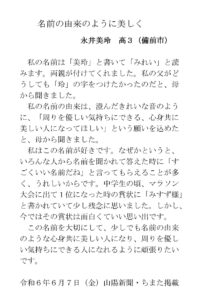 名前の由来のように美しく
永井美玲 高3（備前市）
私の名前は「美玲」と書いて「みれい」と読
みます。両親が付けてくれました。私の父がど
うしても「玲」の字をつけたかったのだと、母
から聞きました。
私の名前の由来は、澄んだきれいな音のよう
に、「周りを優しい気持ちにできる、心身共に
美しい人になってほしい」という願いを込めた
と、母から聞きました。
私はこの名前が好きです。なぜかというと、
いろんな人から名前を聞かれて答えた時に「す
ごくいい名前だね」と言ってもらえることが多
く、うれしいからです。中学生の頃、マラソン
大会に出て１位になった時の賞状に「みすず様」
と書かれていて少し残念に思いました。しかし、
今ではその賞状は面白くていい思い出です。
この名前を大切にして、少しでも名前の由来
のような心身共に美しい人になり、周りを優し
い気持ちにできる人になれるように頑張りたい
です。
令和６年６月７日（金）山陽新聞・ちまた掲載